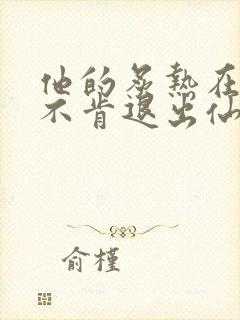 他的炙热在
不肯退出仙
俞槿